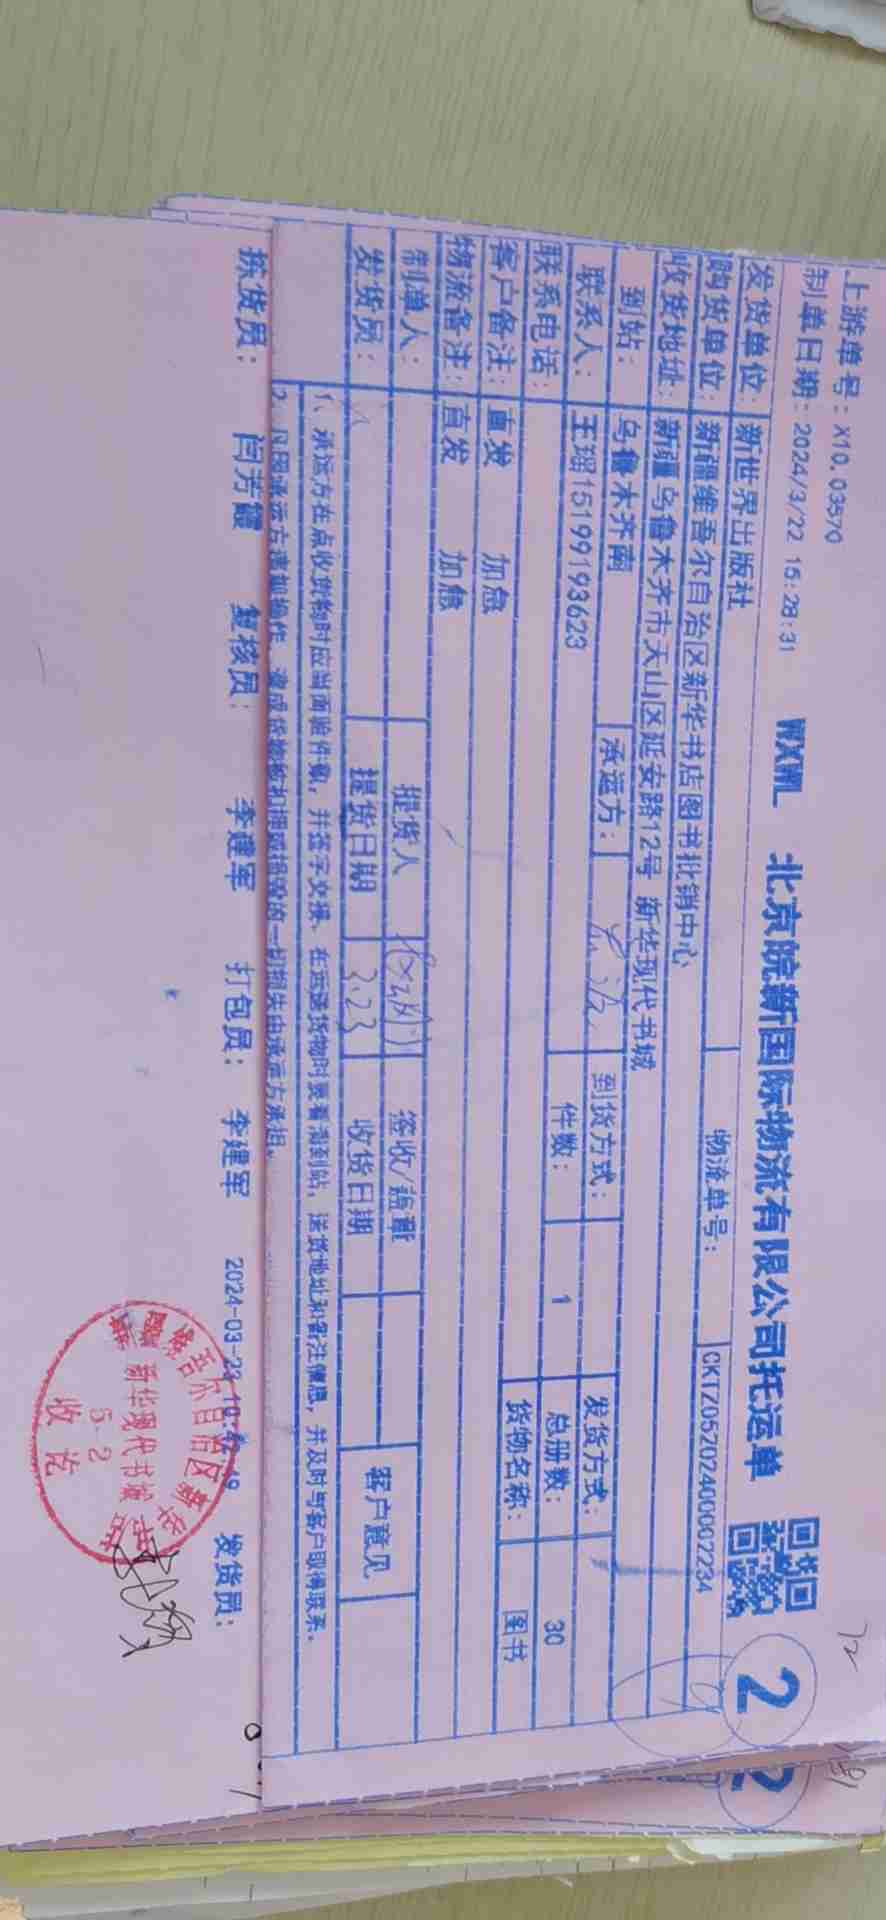 上游单号：X10.03570
制单日期：2024/3/22 15:28:31
WXWL 北京皖新国际物流有限公司托运单
2
发货单位：新世界出版社 物流单号：CKTZ05202400002234
购货单位：新疆维吾尔自治区新华书店图书批销中心
收货地址：新疆乌鲁木齐市天山区延安路12号 新华现代书城
到站：乌鲁木齐南 承运方： 到货方式： 发货方式：
联系人：王瑶15199193623 件数：1 总册数：30
联系电话： 货物名称：图书
客户备注：直发 加急
物流备注：直发 加急
制单人： 提货人 签收/盖章 客户意见
发货员： 提货日期 3.23 收货日期
1、承运方在点收货物时应当面验件数，并签字交接，在运送货物时要看清到站、送货地址和备注信息，并及时与客户取得联系。
2、凡因承运方违规操作，造成货物被扣押或损毁的一切损失由承运方承担。
拣货员：闫芳霞 复核员：李建军 打包员：李建军 2024-03-23 发货员：
新疆维吾尔自治区新华书店
新华现代书城
5.2
收讫